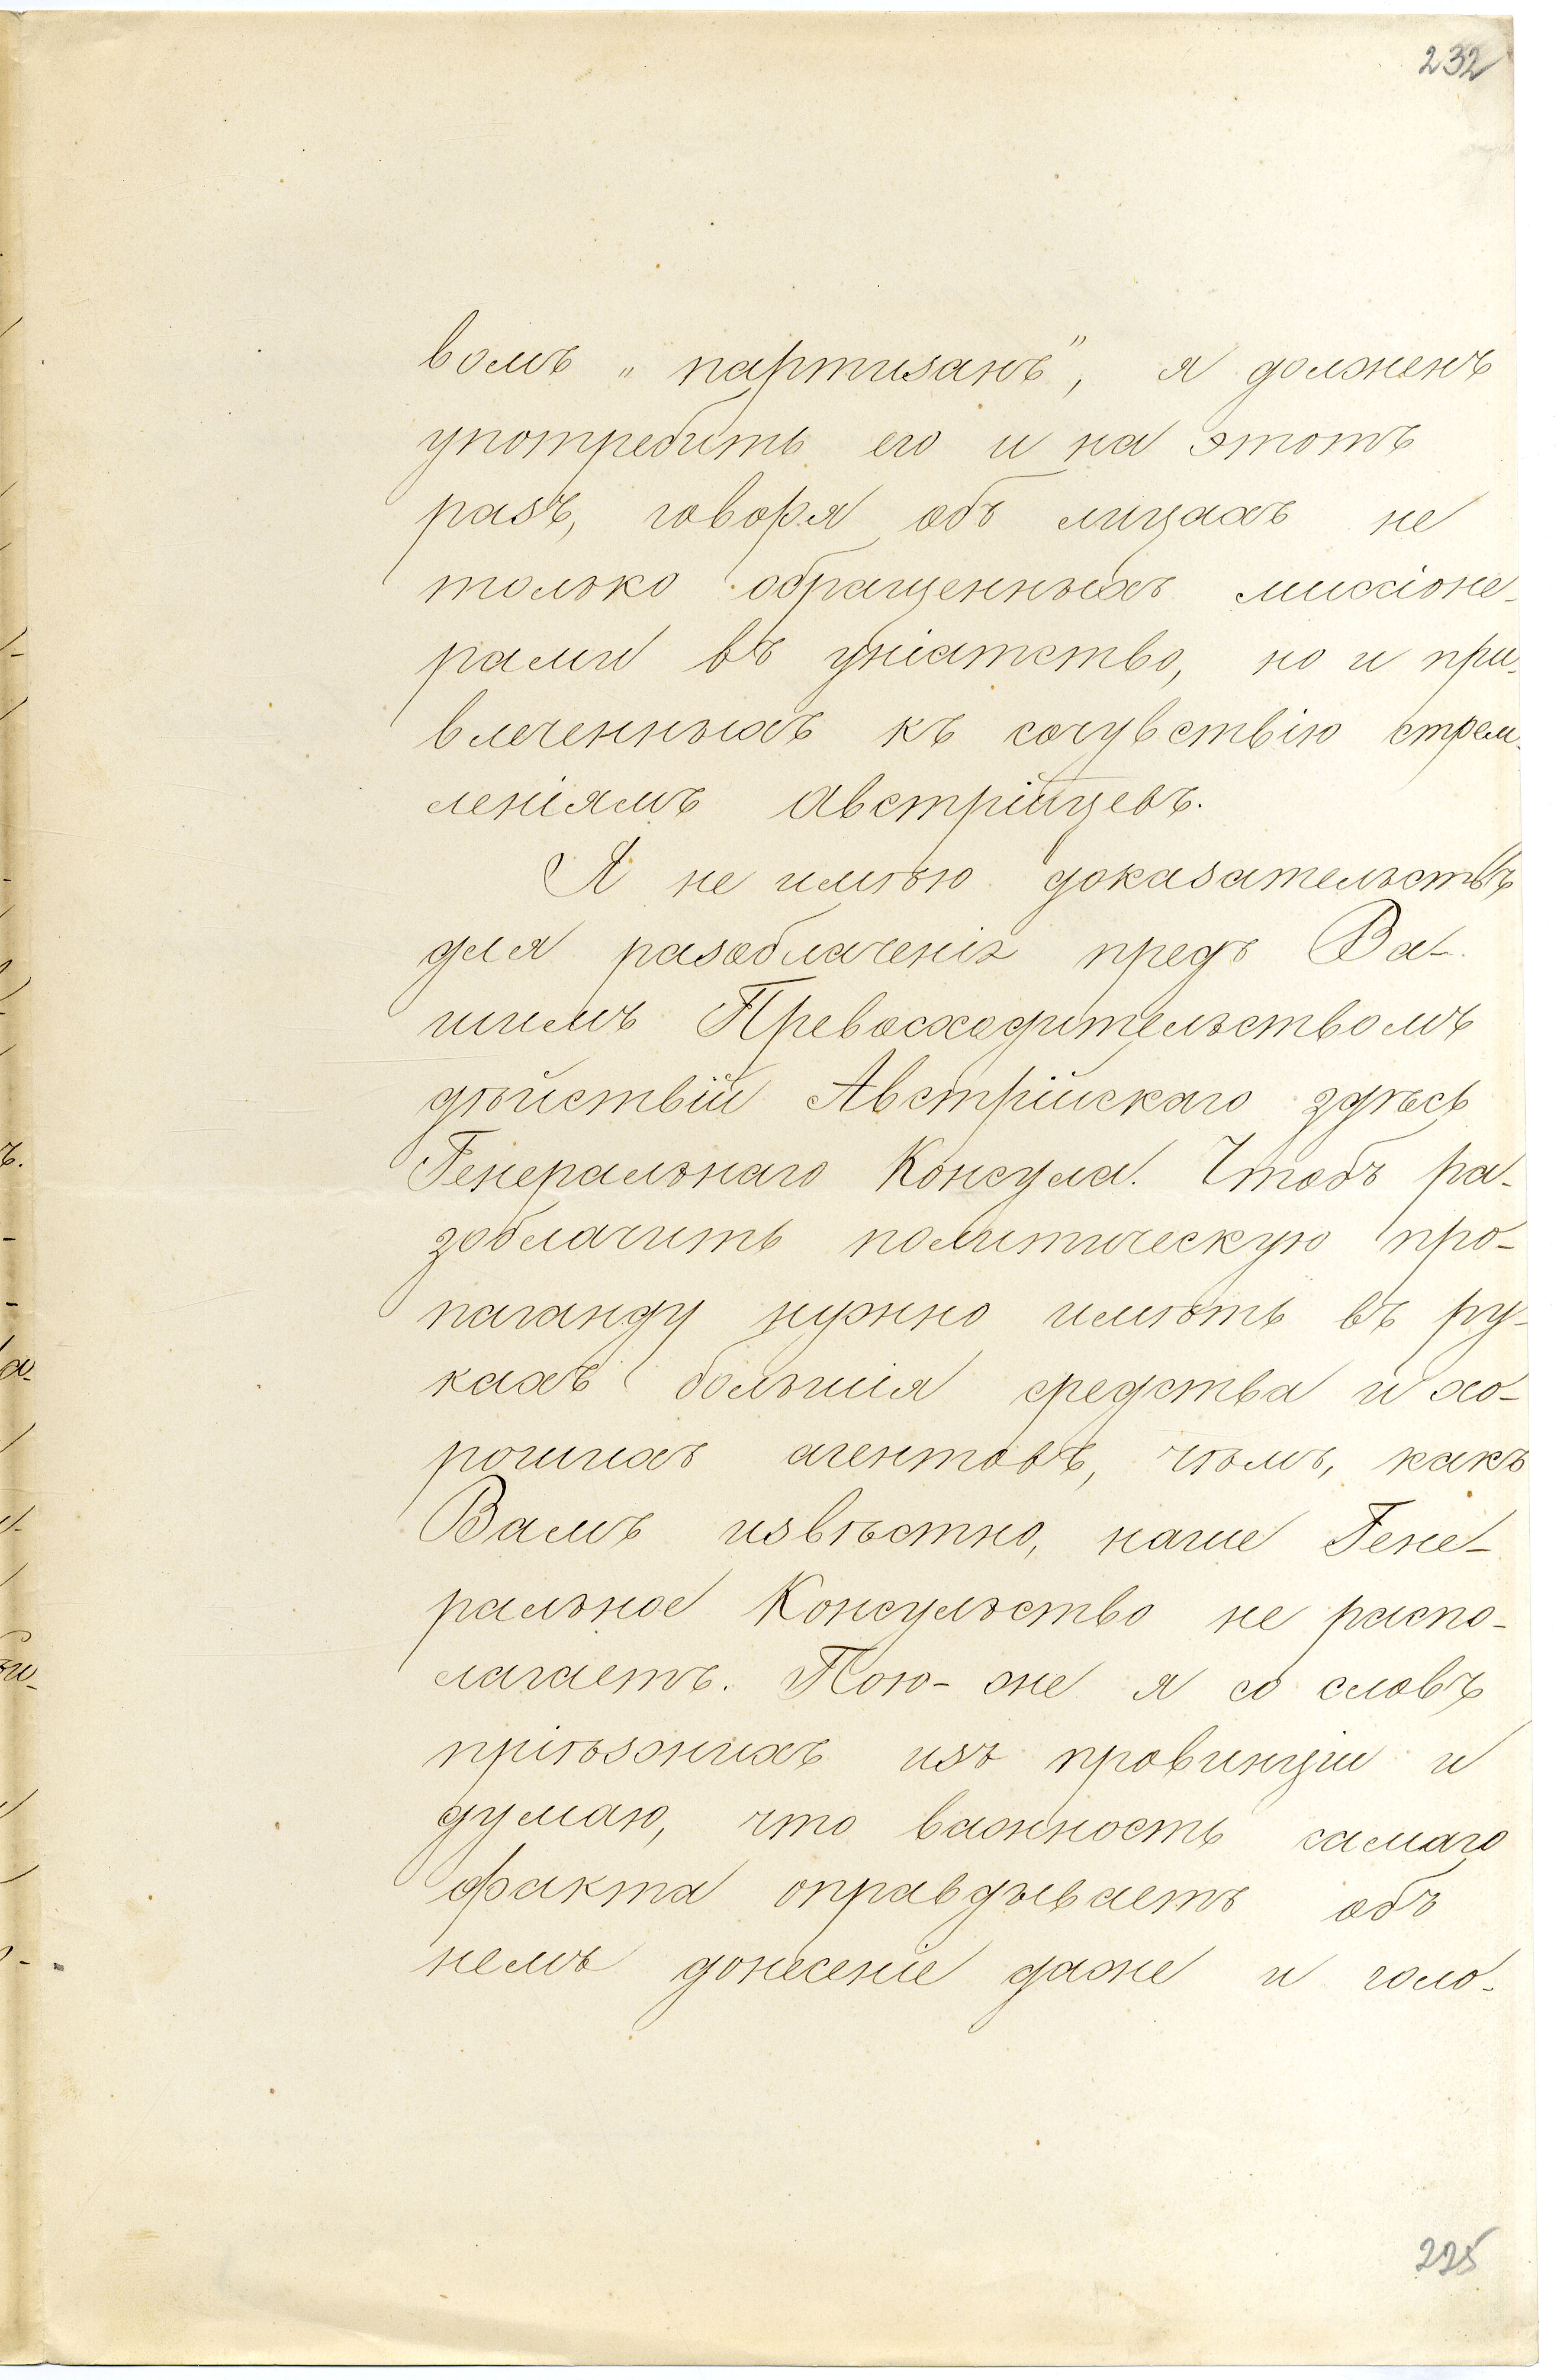 232
вомъ „партизанъ", я долженъ
употребить его и на этотъ
разъ, говоря объ лицахъ не
только обращенныхъ миссіоне-
рами въ уніатство, но и при-
влеченныхъ къ сочувствію стрем-
леніямъ Австрійцевъ.
Я не имѣю доказательствъ
для разоблаченія предъ Ва-
шимъ Превосходительствомъ
дѣйствій Австрійскаго здѣсь
Генеральнаго Консула. Чтобъ ра-
зоблачить политическую про-
паганду нужно имѣть въ ру-
кахъ большія средства и хо-
рошихъ агентовъ, чѣмъ, какъ
Вамъ извѣстно, наше Гене-
ральное Консульство не распо-
лагаетъ. Пою-же я со словъ
пріѣзжихъ изъ провинціи и
думаю, что важность самаго
факта оправдываетъ объ
немъ донесеніе даже и голо-
225